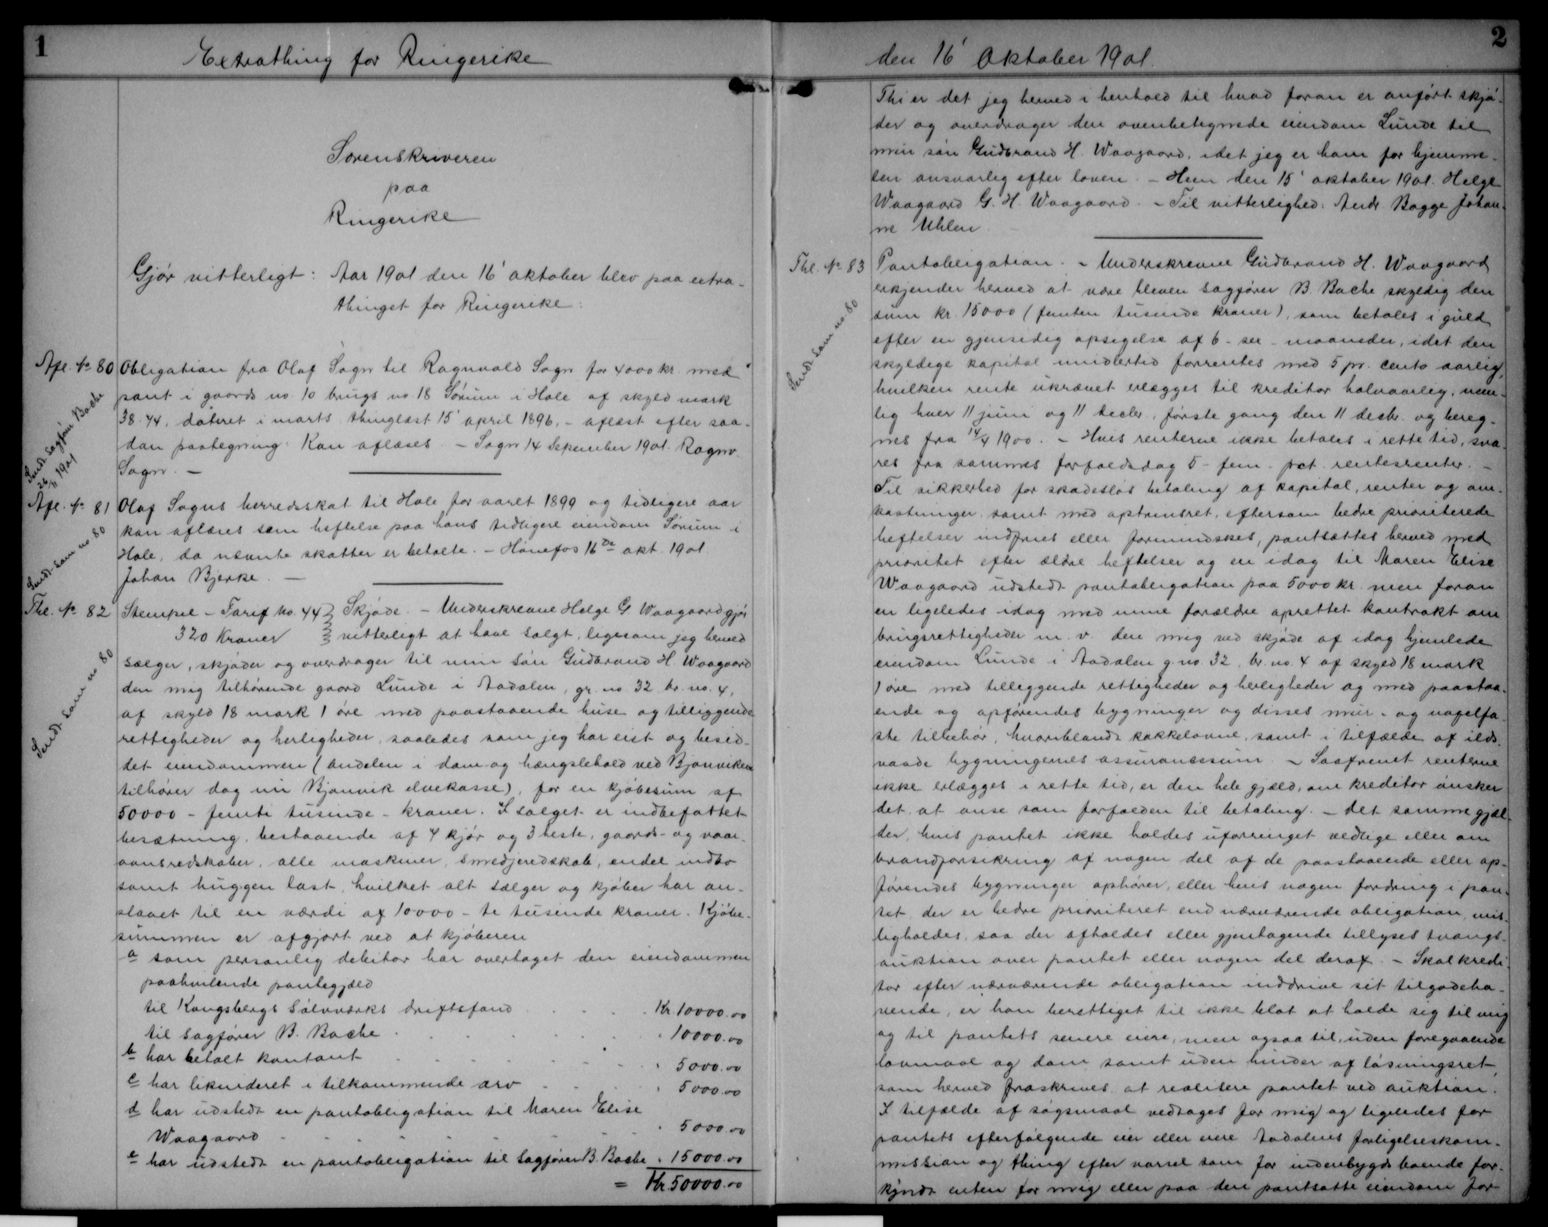 1
Extrathing for Ringerike
Sorenskriveren
paa
Ringerike
Gjør vitterligt: Aar 1901 den 16' oktober blev paa extra-
thinget for Ringerike:
Afl. No 80
Obligation fra Olaf Sogn til Ragnvald Sogn for 4000 kr. med
pant i gaards no. 10 brugs no 18 Sörum i Hole af skyld mark
38.44, dateret i marts thinglæst 15' april 1896, - aflæst efter saa-
dan paategning: Kan aflæses. - Sogn 14 September 1901. Ragnv.
Sogn. -
Indl. Sagfører Bache
Afl. No 81
Olaf Sogns herredsskat til Hole for aaret 1899 og tidligere aar
kan aflæses som heftelse paa hans tidligere eiendom Sörum i
Hole, da nævnte skatter er betalte. - Hønefos 16de okt. 1901.
Johan Bjerke. -
Indl. som no 80
Thl. No 82
Stempel - Tarif No. 44 Skjøde. - Underskrevne Helge G. Waagaard gjør
320 Kroner vitterligt at have solgt, ligesom jeg herved
sælger, skjøder og overdrager til min sön Gudbrand H. Waagaard
den mig tilhørende gaard Lunde i Aadalen, gr. no. 32 br. no. 4,
af skyld 18 mark 1 öre med paastaaende huse og tilliggende
rettigheder og herligheder, saaledes som jeg har eiet og besid-
det eiendommen (andelen i dam og hængslehold ved Bjonviken
tilhører dog Bjonvik elvekasse), for en kjøbesum af
50000 - femti tusinde - kroner. I salget er indbefattet
besætning, bestaaende af 4 kjør og 3 heste, gaards- og vaar-
aansredskaber, alle maskiner, smedjeredskab, endel indbo
samt huggen last, hvilket alt sælger og kjøber har an-
slaaet til en værdi af 10000 - ti tusinde kroner. Kjøbe-
summen er afgjort ved at kjøberen
a som personlig debitor har overtaget den eiendommen
paahvilende pantegjæld
til Kongsbergs Sølvværks driftsfond . . . . Kr 10000.00
til Sagfører B. Bache . . . . 10000.00
b har betalt kontant . . . . 5000.00
c har likvideret i tilkommende arv . . . . 5000.00
d har udstedt en pantobligation til Maren Elise
Waagaard . . . . 5000.00
e har udstedt en pantobligation til Sagfører B. Bache . 15000.00
= Kr 50000.00
Indl. som no 80
2
den 16' Oktober 1901.
Thi er det jeg herved i henhold til hvad foran er anført skjø-
der og overdrager den ovenbetegnede eiendom Lunde til
min sön Gudbrand H. Waagaard, idet jeg er ham for hjemme-
len ansvarlig efter loven. - Hen den 15' oktober 1901. Helge
Waagaard G. H. Waagaard. - Til vitterlighed: Andr. Bagge Johan-
ne Uhlen
Thl. No 83
Pantobligation. - Underskrevne Gudbrand H. Waagaard
erkjender herved at være bleven sagfører B. Bache skyldig den
sum kr. 15000 (femten tusinde kroner), som betales i guld
efter en gjensidig opsigelse af 6 - sex - maaneder, idet den
skyldige kapital imidlertid forrentes med 5 pr. cento aarlig,
hvilken rente ukrævet erlægges til kreditor halvaarlig, nem-
lig hver 11 juni og 11 decbr., første gang den 11 decbr. og bereg-
nes fra 14/4 1900. - Hvis renterne ikke betales i rette tid, sva-
res fra sammes forfaldsdag 5 - fem - pct. rentesrenter. -
Til sikkerhed for skadesløs betaling af kapital, renter og om-
kostninger samt med optrinsret, eftersom bedre prioriterede
heftelser indfries eller formindskes, pantsættes herved med
prioritet efter ældre heftelser og en idag til Maren Elise
Waagaard udstedt pantobligation paa 5000 kr. men foran
en ligeledes idag med mine forældre oprettet kontrakt om
brugsrettigheder m. v. den mig ved skjøde af idag hjemlede
eiendom Lunde i Aadalen g. no. 32 br. no. 4 af skyld 18 mark
1 øre med tilleggende rettigheder og herligheder og med paastaa-
ende og opførendes bygninger og disses mur- og nagelfa-
ste tilbehør, hvoriblandt kakkelovne, samt i tilfælde af ilds-
vaade bygningernes assurancesum. - Saafremt renterne
ikke erlægges i rette tid, er den hele gjæld, om kreditor ønsker
det, at anse som forfalden til betaling. - Det samme gjæl-
der, hvis pantet ikke holdes uforringet vedlige eller om
brandforsikring af nogen del af de paastaaende eller op-
førendes bygninger ophører, eller hvis nogen fordring i pan-
tet, der er bedre prioriteret end nærværende obligation, mis-
ligholdes, saa der afholdes eller gjentagende tillyses tvangs-
auktion over pantet eller nogen del deraf. - Skal kredi-
tor efter nærværende obligation inddrive sit tilgodeha-
vende, er han berettiget til ikke blot at holde sig til mig
og til pantets senere eiere, men ogsaa til, uden foregaaende
lovmaal og dom samt uden hinder af løsningsret,
som herved fraskrives, at realisere pantet ved auktion.
I tilfælde af søgsmaal vedtages for mig og ligeledes for
pantets efterfølgende eier eller eiere Aadalens forligelseskom-
mission og thing efter varsel som for indenbygds boende for-
kyndt enten for mig eller paa den pantsatte eiendom for
Indl. som no. 80